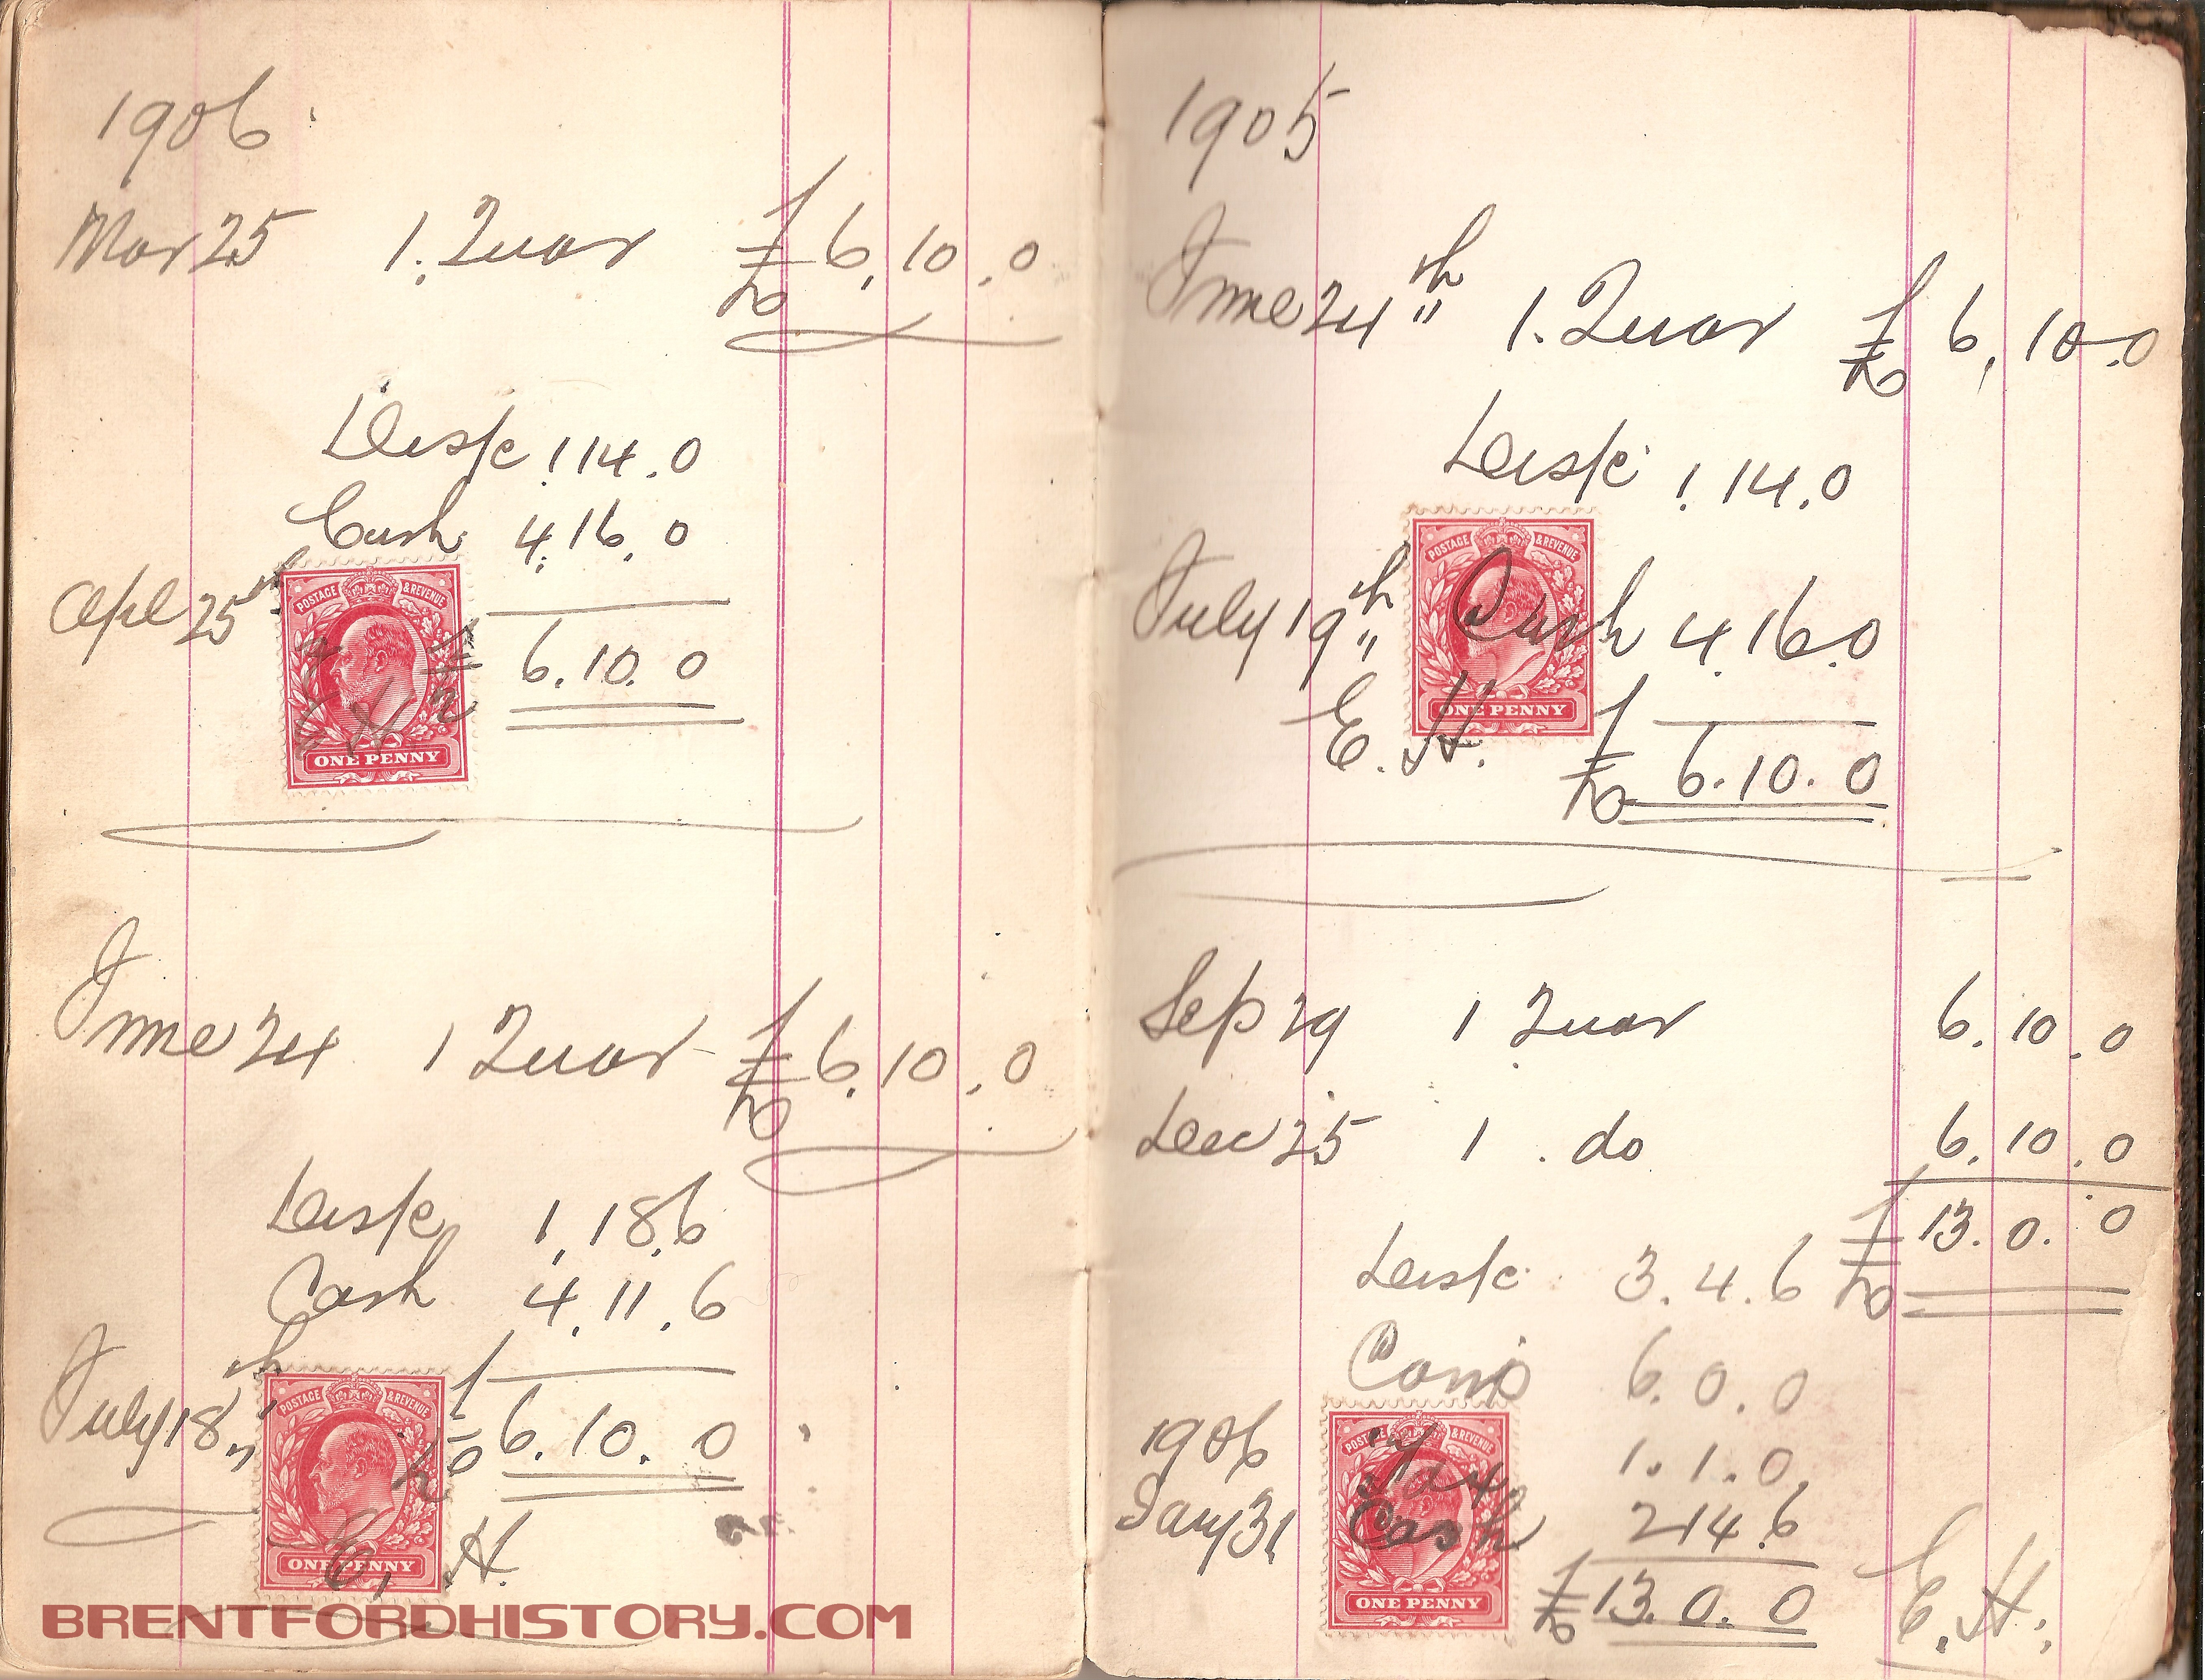 1906
Mar 25 1. Quar £ 6.10.0
Disk 1.14.0
Cash 4.16.0
Apl 25th
POSTAGE & REVENUE
£ 6.10.0
E H
ONE PENNY
June 24 1 Quar £ 6.10.0
Disk 1.18.6
Cash 4.11.6
July 18th
POSTAGE & REVENUE
£ 6.10.0
E. H.
ONE PENNY
BRENTFORDHISTORY.COM
1905
June 24th 1. Quar £ 6.10.0
Disk 1.14.0
POSTAGE & REVENUE
July 19th Cash 4.16.0
E. H.
ONE PENNY
£ 6.10.0
Sep 29 1 Quar 6.10.0
Dec 25 1 . do 6.10.0
£ 13.0.0
Disk 3.4.6
6.0.0
POSTAGE & REVENUE
1906 Tax 1.1.0
Jany 31 Cash 2.14.6
£ 13.0.0
E. H.
ONE PENNY